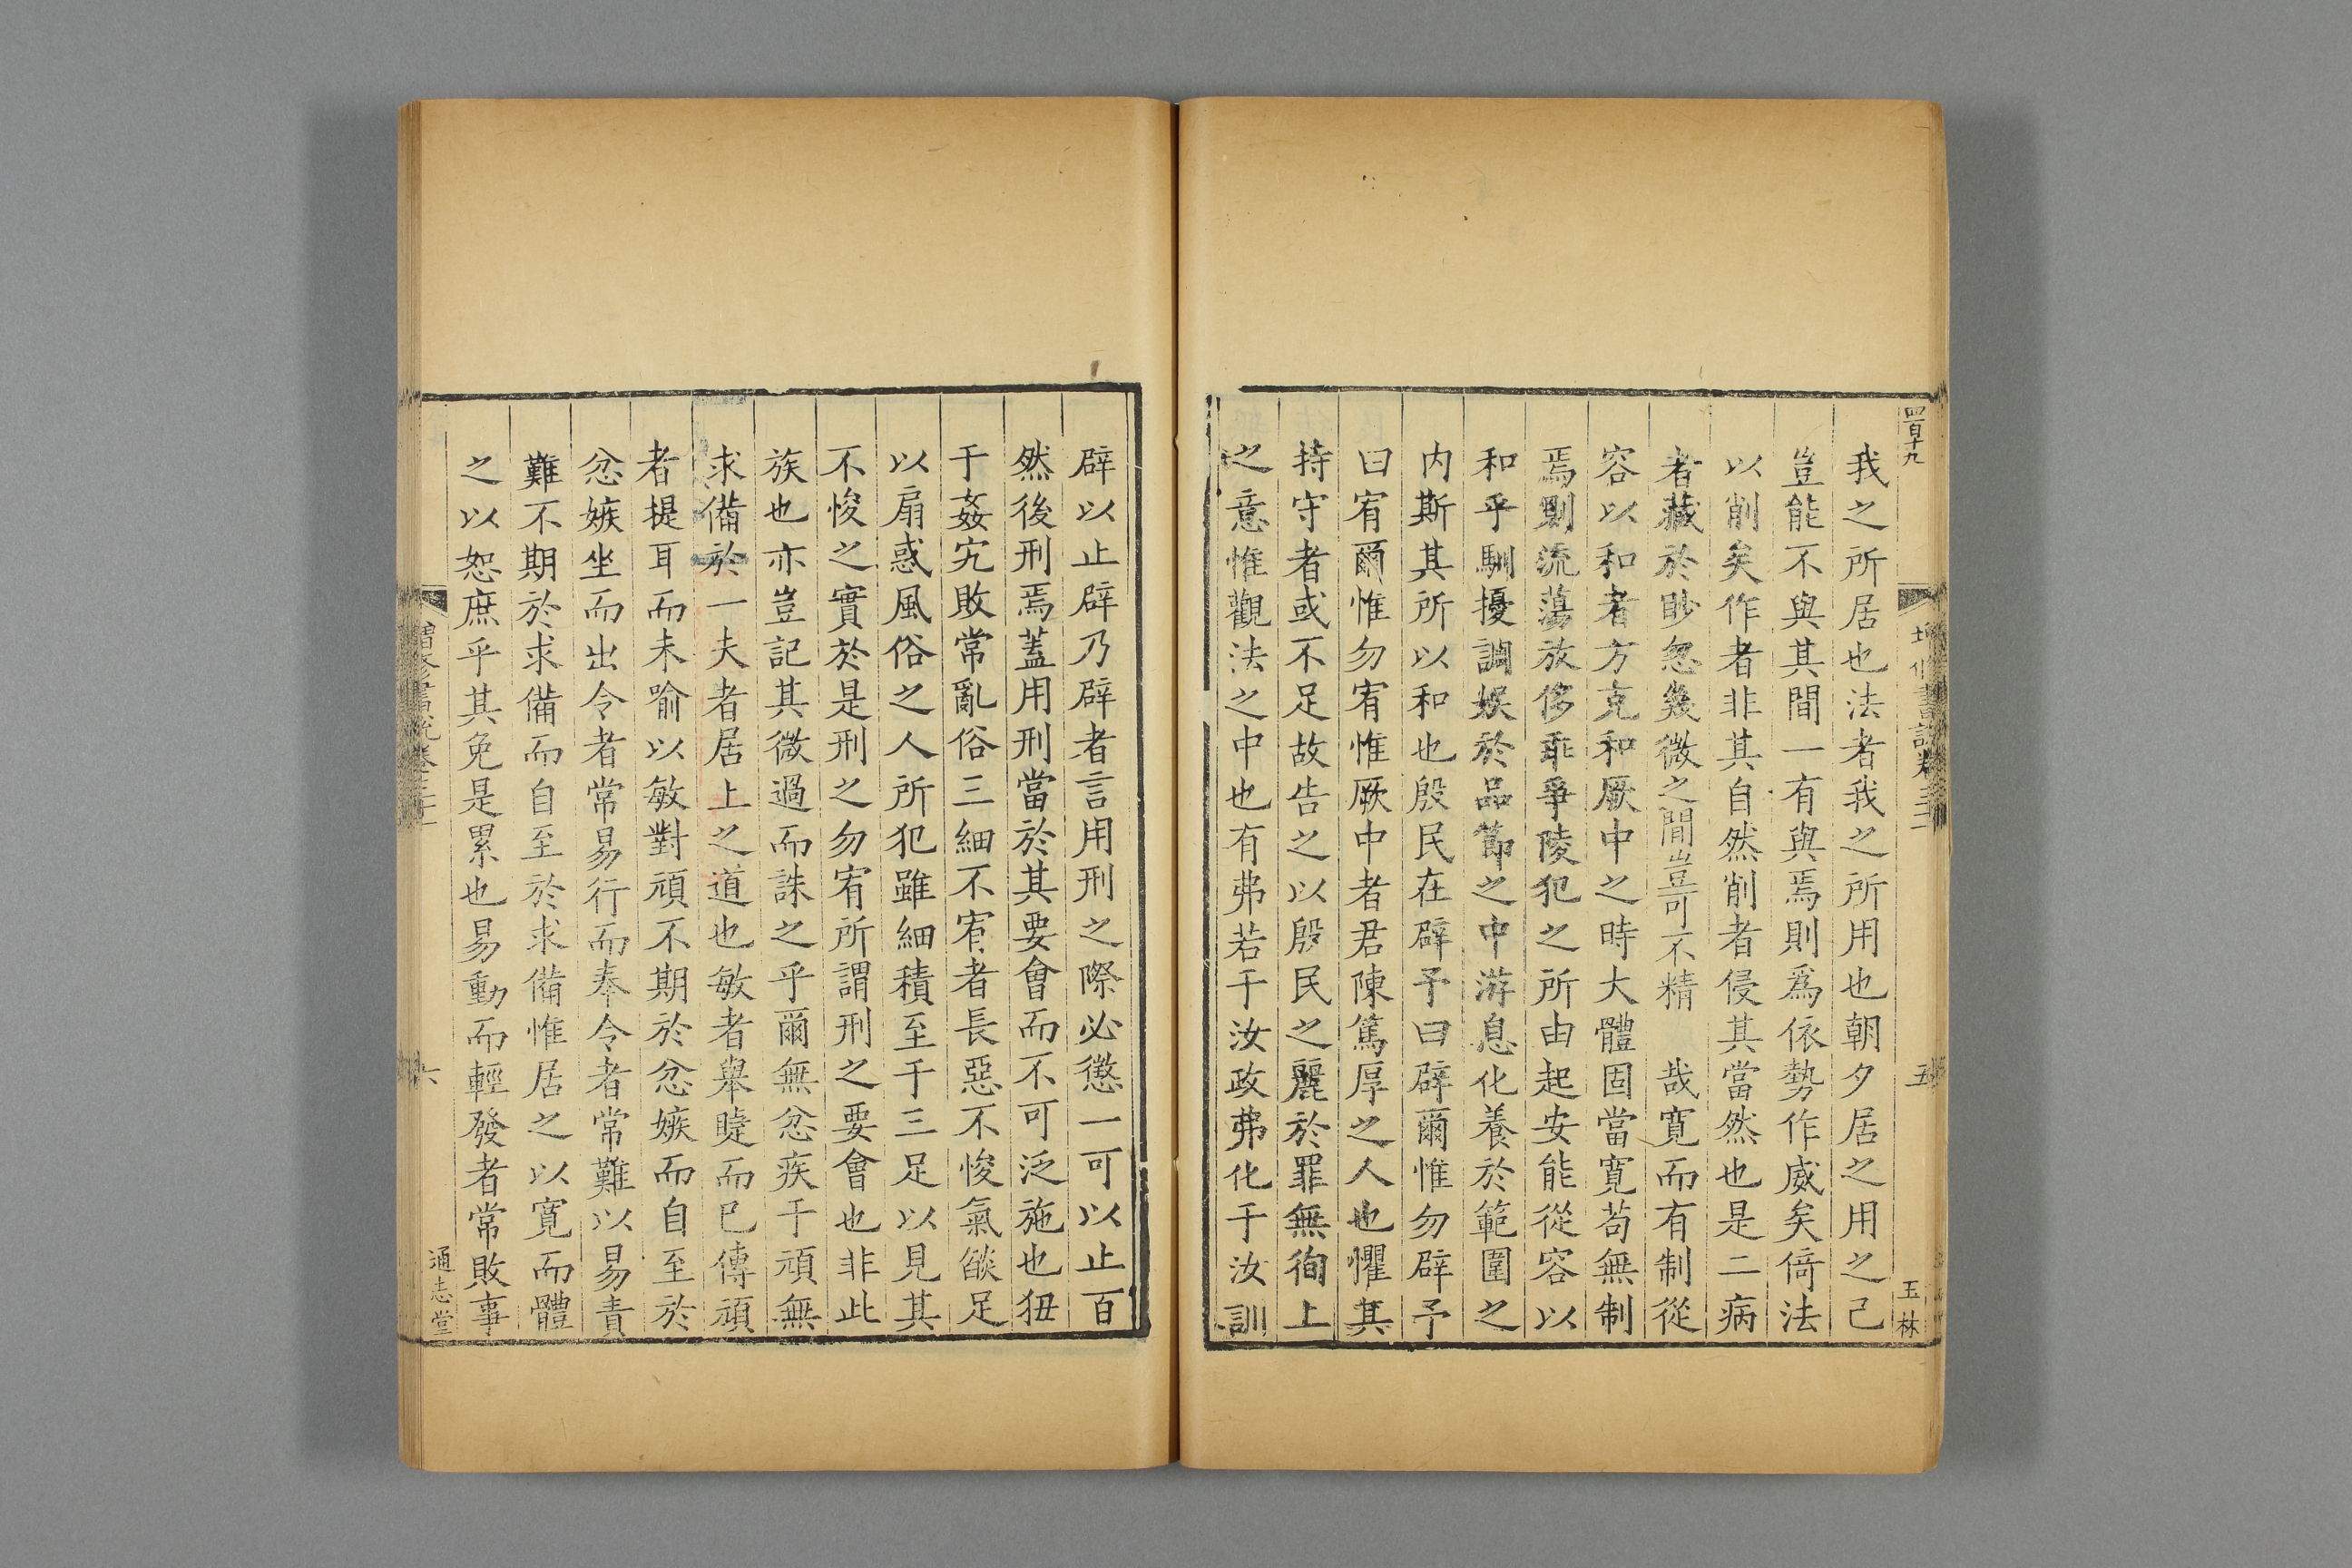 四百十九
五
玉林
我之所居也法者我之所用也朝夕居之用之己
豈能不與其間一有與焉則爲依勢作威矣倚法
以削矣作者非其自然削者侵其當然也是二病
者藏於眇忽幾微之間豈可不精哉寛而有制從
容以和者方克和厥中之時大體固當寛苟無制
焉則流蕩放侈乖爭陵犯之所由起安能從容以
和乎馴擾調娛於品節之中游息化養於範圍之
内斯其所以和也殷民在辟予曰辟爾惟勿辟予
曰宥爾惟勿宥惟厥中者君陳篤厚之人也懼其
持守者或不足故告之以殷民之麗於罪無徇上
之意惟觀法之中也有弗若于汝政弗化于汝訓
辟以止辟乃辟者言用刑之際必懲一可以止百
然後刑焉蓋用刑當於其要會而不可泛施也狃
于姦宄敗常亂俗三細不宥者長惡不悛氣燄足
以扇惑風俗之人所犯雖細積至于三足以見其
不悛之實於是刑之勿宥所謂刑之要會也非此
族也亦豈記其微過而誅之乎爾無忿疾于頑無
求備於一夫者居上之道也敏者舉睫而已傳頑
者提耳而未喻以敏對頑不期於忿嫉而自至於
忿嫉坐而出令者常易行而奉令者常難以易責
難不期於求備而自至於求備惟居之以寛而體
之以恕庶乎其免是累也易動而輕發者常敗事
增修書說卷三十一
六
通志堂